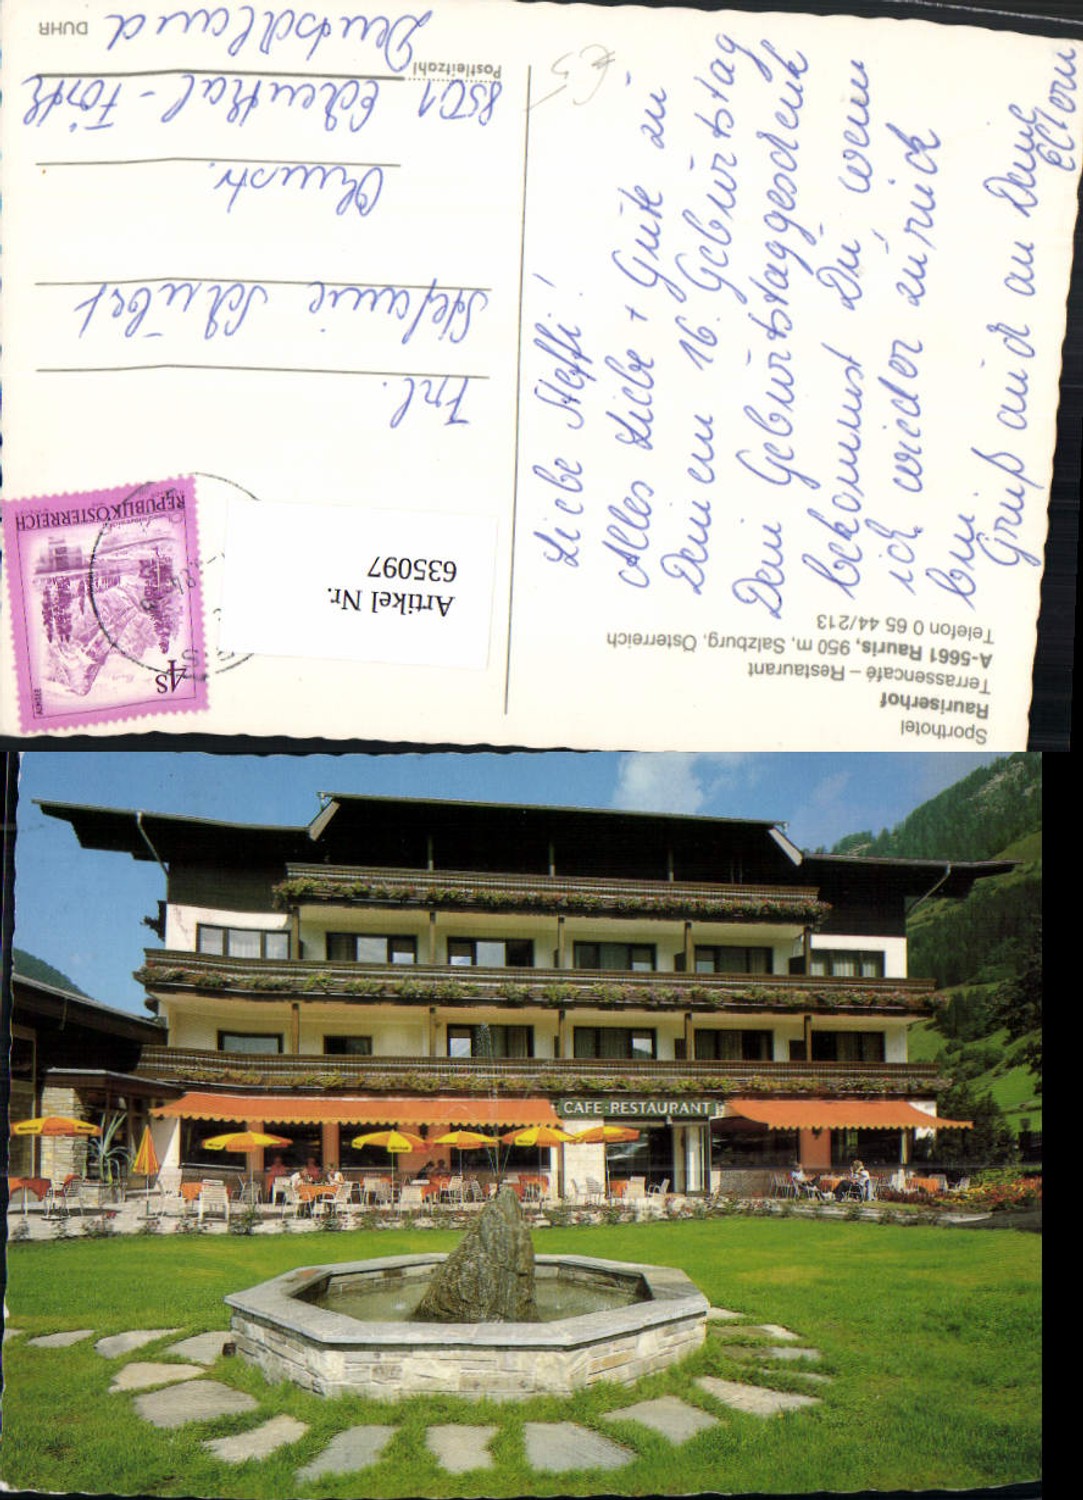 Sporthotel
Rauriserhof
Terrassencafé – Restaurant
A-5661 Rauris, 950 m, Salzburg, Österreich
Telefon 0 65 44/213
Liebe Steffi!
Alles Liebe + Gute zu
Deinem 16. Geburtstag
Dein Geburtstaggeschenk
bekommst Du, wenn
ich wieder zurück
bin
Gruß auch an Deine
Eltern
€5
REPUBLIK ÖSTERREICH
4S
ALMSEE
Artikel Nr.
635097
Frl.
Stefanie Schubert
8501 Eckental-Forth
Postleitzahl
Deutschland
DUHR
CAFE-RESTAURANT